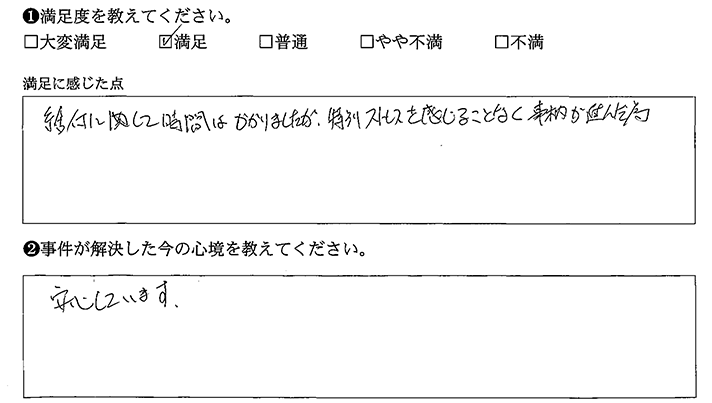 ❶満足度を教えてください。
□大変満足 ☑満足 □普通 □やや不満 □不満
満足に感じた点
給付に関して時間はかかりましたが、特別ストレスを感じることなく事柄が進んだ為
❷事件が解決した今の心境を教えてください。
安心しています。